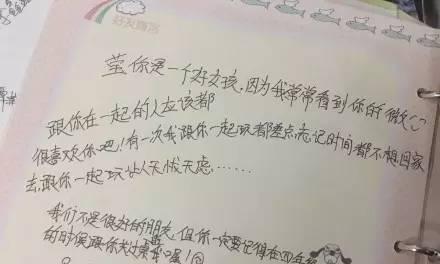 好友留言
莹,你是一个好女孩,因为我常常看到你的微
跟你在一起的人应该都
很喜欢你吧!有一次我跟你一起玩都差点忘记时间都不想回家
去,跟你一起玩让人无忧无虑……
我们不是很好的朋友,但你一定要记得在四年
的时候跟你